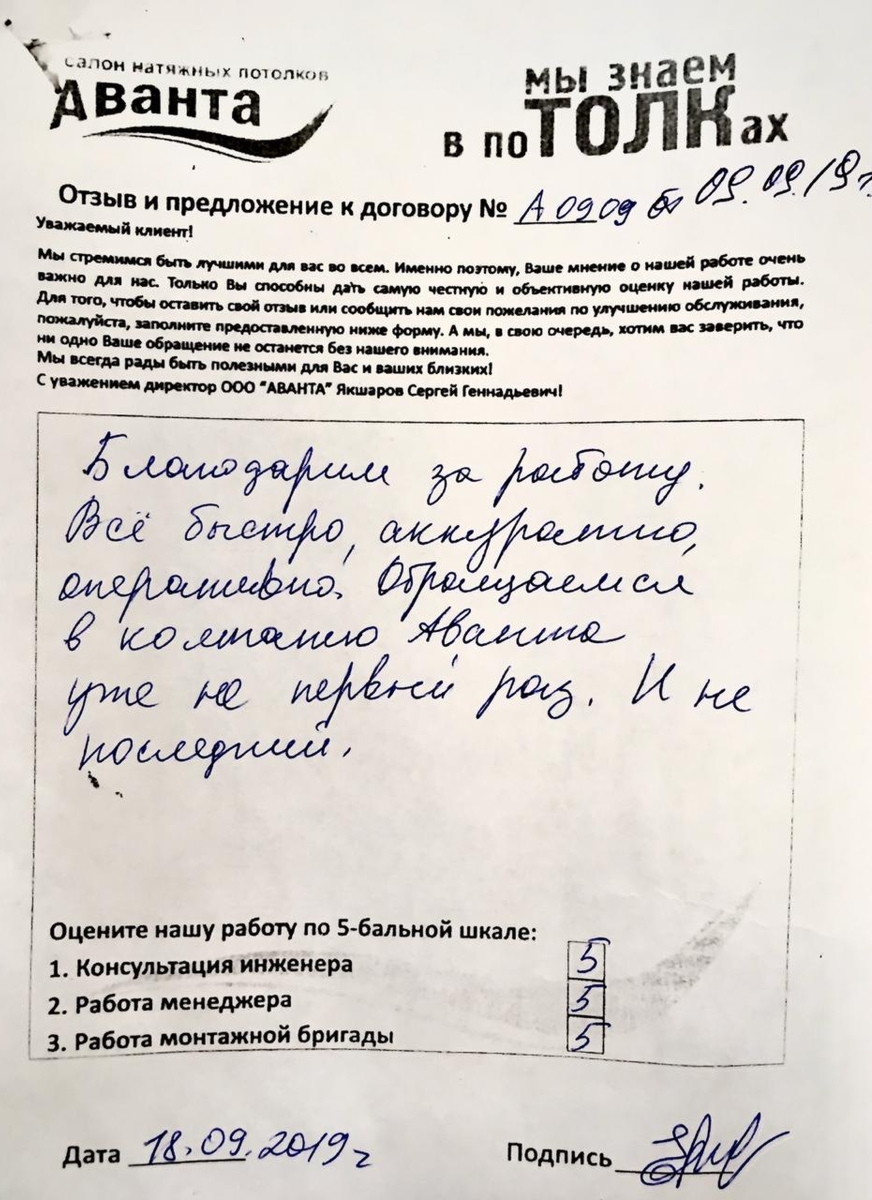 салон натяжных потолков
Аванта
мы знаем
в поТОЛКах
Отзыв и предложение к договору № А 0909 от 09.09.19г.
Уважаемый клиент!
Мы стремимся быть лучшими для вас во всем. Именно поэтому, Ваше мнение о нашей работе очень
важно для нас. Только Вы способны дать самую честную и объективную оценку нашей работы.
Для того, чтобы оставить свой отзыв или сообщить нам свои пожелания по улучшению обслуживания,
пожалуйста, заполните предоставленную ниже форму. А мы, в свою очередь, хотим вас заверить, что
ни одно Ваше обращение не останется без нашего внимания.
Мы всегда рады быть полезными для Вас и ваших близких!
С уважением директор ООО "АВАНТА" Якшаров Сергей Геннадьевич!
Благодарим за работу.
Всё быстро, аккуратно,
оперативно. Обращаемся
в компанию Аванта
уже не первый раз. И не
последний.
Оцените нашу работу по 5-бальной шкале:
1. Консультация инженера 5
2. Работа менеджера 5
3. Работа монтажной бригады 5
Дата 18.09.2019г Подпись